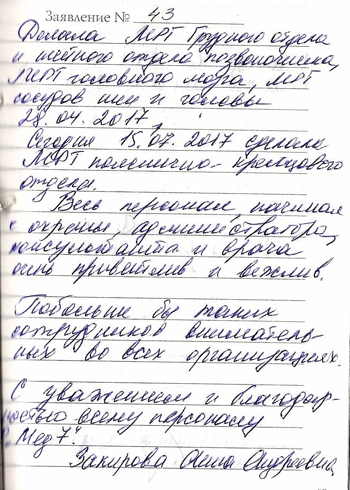 Заявление № 43
Делала МРТ Грудного отдела
и шейного отдела позвоночника,
МРТ головного мозга, МРТ
сосудов шеи и головы
28.04.2017,
Сегодня 15.07.2017 сделала
МРТ пояснично-крестцового
отдела.
Весь персонал, начиная
с охраны, администратора,
консультанта и врача
очень приветлив и вежлив.
Побольше бы таких
сотрудников вниматель-
ных во всех организациях.
С уважением и благодар-
ностью всему персоналу
Мед 7".
Закирова Анна Андреевна